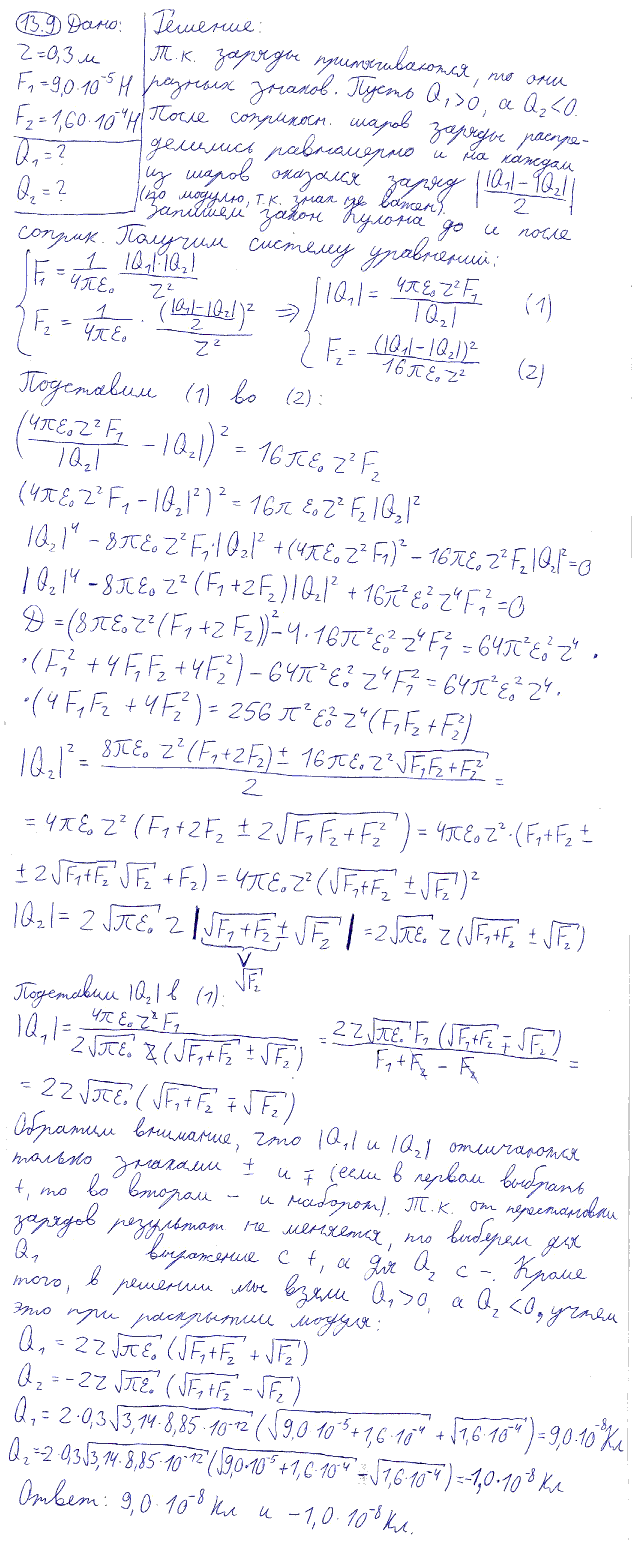 13.9 Дано: Решение:
r=0,3 м Т.к. заряды притягиваются, то они
F₁=9,0·10⁻⁵ Н разных знаков. Пусть Q₁>0, а Q₂<0.
F₂=1,60·10⁻⁴ Н После соприкосн. шаров заряды распре-
Q₁=? делились равномерно и на каждом
Q₂=? из шаров оказался заряд |(|Q₁|-|Q₂|)/2|
(по модулю, т.к. знак не важен).
Запишем закон Кулона до и после
соприк. Получим систему уравнений:
{ F₁ = 1/(4πε₀) · |Q₁|·|Q₂|/r² ⇒ { |Q₁| = 4πε₀r²F₁/|Q₂| (1)
F₂ = 1/(4πε₀) · ((|Q₁|-|Q₂|)/2)²/r² F₂ = (|Q₁|-|Q₂|)²/(16πε₀r²) (2)
Подставим (1) во (2):
(4πε₀r²F₁/|Q₂| - |Q₂|)² = 16πε₀r²F₂
(4πε₀r²F₁ - |Q₂|²)² = 16πε₀r²F₂|Q₂|²
|Q₂|⁴ - 8πε₀r²F₁·|Q₂|² + (4πε₀r²F₁)² - 16πε₀r²F₂|Q₂|²=0
|Q₂|⁴ - 8πε₀r²(F₁+2F₂)|Q₂|² + 16π²ε₀²r⁴F₁²=0
D=(8πε₀r²(F₁+2F₂))²-4·16π²ε₀²r⁴F₁² = 64π²ε₀²r⁴·
·(F₁² + 4F₁F₂ + 4F₂²) - 64π²ε₀²r⁴F₁² = 64π²ε₀²r⁴·
·(4F₁F₂ + 4F₂²) = 256π²ε₀²r⁴(F₁F₂+F₂²)
|Q₂|² = (8πε₀r²(F₁+2F₂) ± 16πε₀r²√(F₁F₂+F₂²))/2 =
= 4πε₀r²(F₁+2F₂ ± 2√(F₁F₂+F₂²)) = 4πε₀r²·(F₁+F₂ ±
± 2√(F₁+F₂)√F₂ + F₂) = 4πε₀r²(√(F₁+F₂) ± √F₂)²
|Q₂| = 2√(πε₀) r|√(F₁+F₂) ± √F₂| = 2√(πε₀) r(√(F₁+F₂) ± √F₂)
∨
√F₂
Подставим |Q₂| в (1):
|Q₁| = 4πε₀r²F₁/(2√(πε₀) r(√(F₁+F₂) ± √F₂)) = 2r√(πε₀)F₁(√(F₁+F₂) ∓ √F₂)/(F₁+F₂-F₂) =
= 2r√(πε₀)(√(F₁+F₂) ∓ √F₂)
Обратим внимание, что |Q₁| и |Q₂| отличаются
только знаками ± и ∓ (если в первом выбрать
+, то во втором - и наоборот). Т.к. от перестановки
зарядов результат не меняется, то выберем для
Q₁ выражение с +, а для Q₂ с -. Кроме
того, в решении мы взяли Q₁>0, а Q₂<0, учтем
это при раскрытии модуля:
Q₁ = 2r√(πε₀)(√(F₁+F₂) + √F₂)
Q₂ = -2r√(πε₀)(√(F₁+F₂) - √F₂)
Q₁ = 2·0,3√(3,14·8,85·10⁻¹²)(√(9,0·10⁻⁵+1,6·10⁻⁴) + √(1,6·10⁻⁴)) = 9,0·10⁻⁸ Кл
Q₂=-2·0,3√(3,14·8,85·10⁻¹²)(√(9,0·10⁻⁵+1,6·10⁻⁴) - √(1,6·10⁻⁴)) = -1,0·10⁻⁸ Кл
Ответ: 9,0·10⁻⁸ Кл и -1,0·10⁻⁸ Кл.